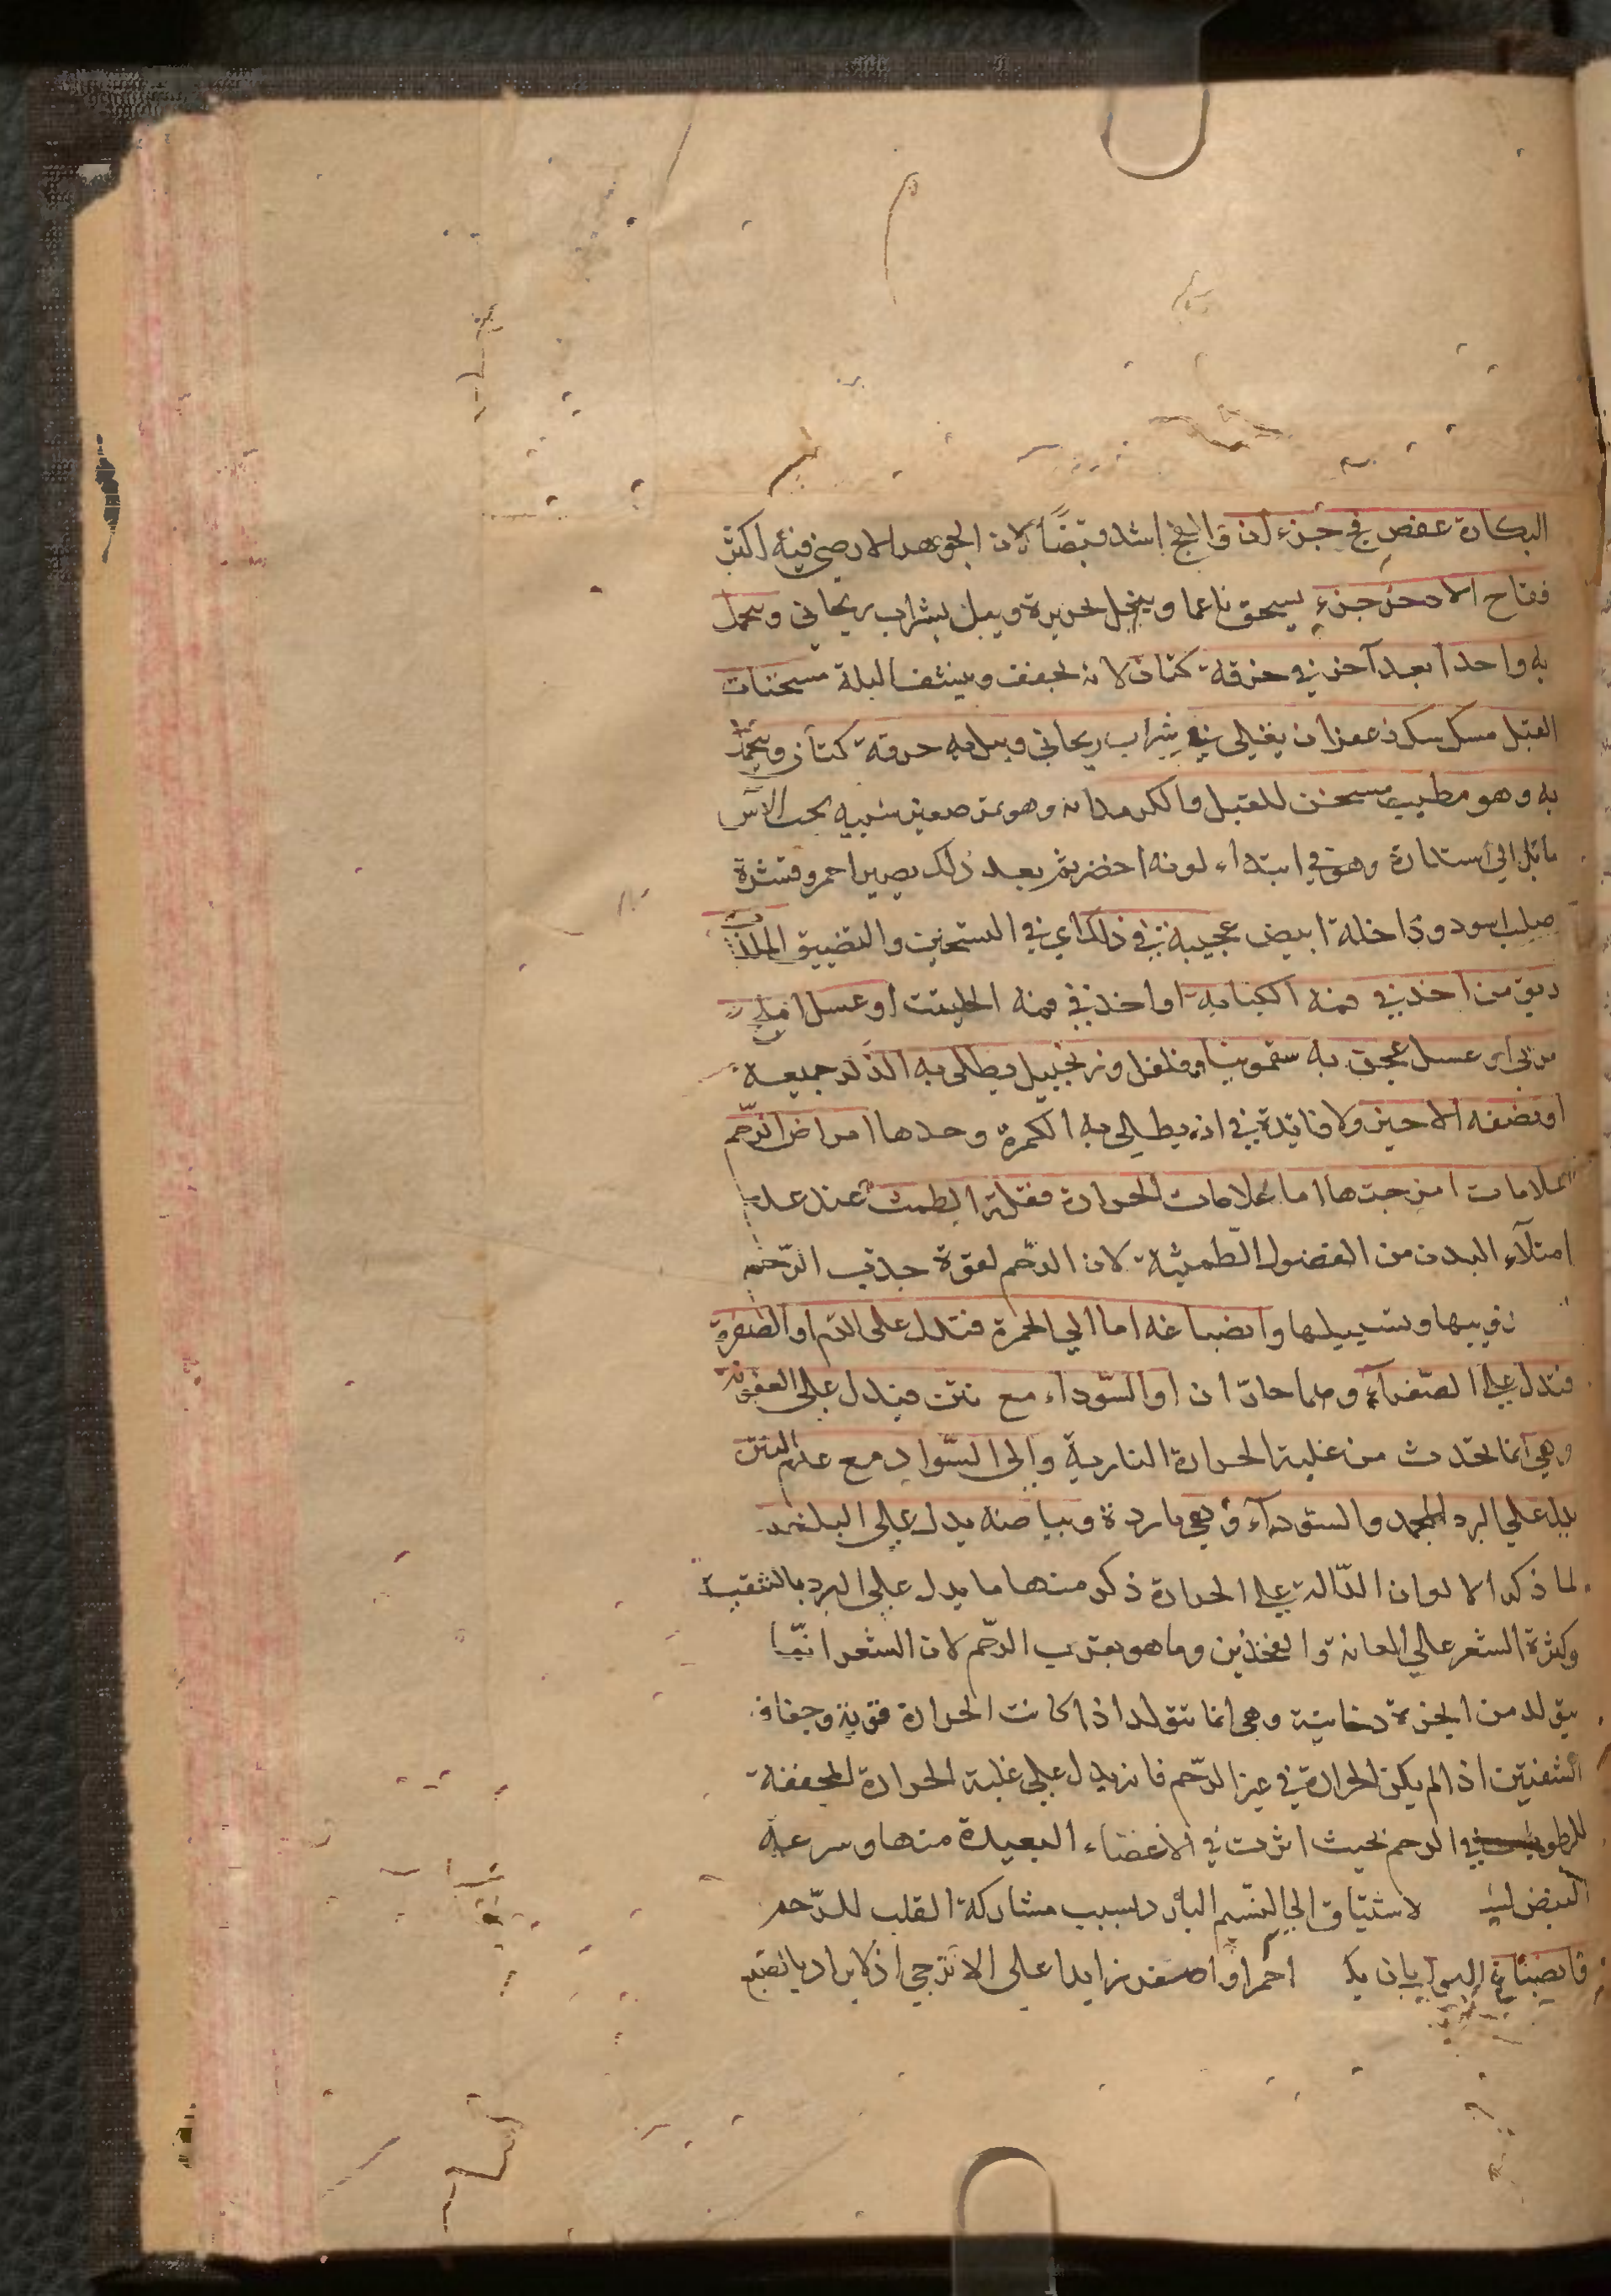 البكارة عفص فج جزءان والفج اشد قبضًا لان الجوهر الارضي فيه اكثر
فقاح الاذخر جزء يسحق ناعما وينخل بحريرة ويبل بشراب ريحاني ويحمل
به واحدا بعد آخر في خرقة كتان لانه يجفف وينشف البلة مسخنات
القبل مسك سك زعفران يغلي في شراب ريحاني ويبل به خرقة كتان ويتحمل
به وهو مطيب مسخن للقبل والكرمدانه وهو ثمر صغير شبيه بحب الآس
مائل الي استدارة وهو في ابتداء لونه اخضر ثم بعد ذلك يصير احمر وقشرة
صلب اسود وداخله ابيض عجيبة في ذلك اي في التسخين والتضييق الملذذات
ريق من اخذ في فمه الكبابه او اخذ في فمه الحلتيت او عسل املج
مربي او عسل عجن به سقمونيا وفلفل وزنجبيل ويطلي به الذكر جميعه
او نصفه الاخير ولا فائدة في ان يطلي به الكمرة وحدها امراض الرحم
علامات امزجتها اما علامات الحرارة فقلة الطمث عند عدم
امتلآء البدن من الفضول الطمثية لان الرحم لقوة جذب الرحم
وانصباغه اما الي الحمرة فتدل علي الدم او الصفرة
فتدل علي الصفرآء وهما حارّان او السّوداء مع نتن فيدل علي العفونة
وهي انما تحدث من غلبة الحرارة النارية والي السّواد مع عدم النتن
يدل علي البرد المجمد والسودآء وهي باردة وبياضه يدل علي البلغم
لما ذكر الالوان الدّالة علي الحرارة ذكر منها ما يدل علي البرد بالتقريب
وكثرة الشعر علي العانة والفخذين وما هو بقرب الرّحم لان الشعر انّما
يتولد من ابخرة دخانية وهي انما تتولد اذا كانت الحرارة قوية وجفاف
الشفتين اذا لم يكن الحرارة في غير الرّحم فانه يدل علي غلبة الحرارة المجففة
للرطوبة في الرحم بحيث اثرت في الاعضاء البعيدة منها وسرعة
النبض لاشتياق الي النّسيم البارد بسبب مشاركة القلب للرّحم
وانصباغ البول بان احمر او اصفر زايدا علي الاترجي اذ لا يراد بانصبـ